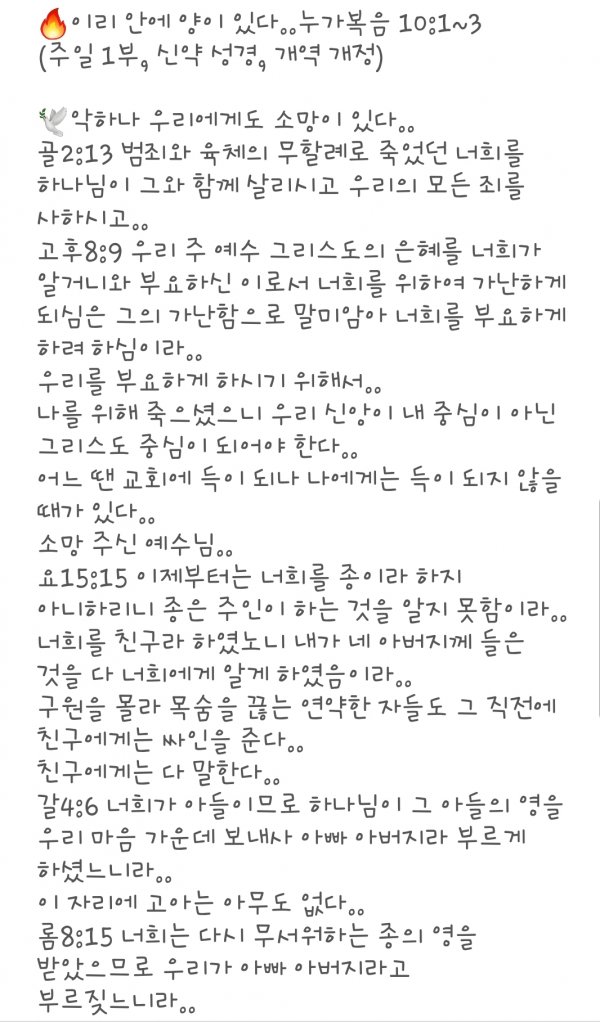 🔥이리 안에 양이 있다。。누가복음 10:1~3
(주일 1부, 신약 성경, 개역 개정)
🕊악하나 우리에게도 소망이 있다。。
골2:13 범죄와 육체의 무할례로 죽었던 너희를
하나님이 그와 함께 살리시고 우리의 모든 죄를
사하시고。。
고후8:9 우리 주 예수 그리스도의 은혜를 너희가
알거니와 부요하신 이로서 너희를 위하여 가난하게
되심은 그의 가난함으로 말미암아 너희를 부요하게
하려 하심이라。。
우리를 부요하게 하시기 위해서。。
나를 위해 죽으셨으니 우리 신앙이 내 중심이 아닌
그리스도 중심이 되어야 한다。。
어느 땐 교회에 득이 되나 나에게는 득이 되지 않을
때가 있다。。
소망 주신 예수님。。
요15:15 이제부터는 너희를 종이라 하지
아니하리니 종은 주인이 하는 것을 알지 못함이라。。
너희를 친구라 하였노니 내가 네 아버지께 들은
것을 다 너희에게 알게 하였음이라。。
구원을 몰라 목숨을 끊는 연약한 자들도 그 직전에
친구에게는 싸인을 준다。。
친구에게는 다 말한다。。
갈4:6 너희가 아들이므로 하나님이 그 아들의 영을
우리 마음 가운데 보내사 아빠 아버지라 부르게
하셨느니라。。
이 자리에 고아는 아무도 없다。。
롬8:15 너희는 다시 무서워하는 종의 영을
받았으므로 우리가 아빠 아버지라고
부르짖느니라。。